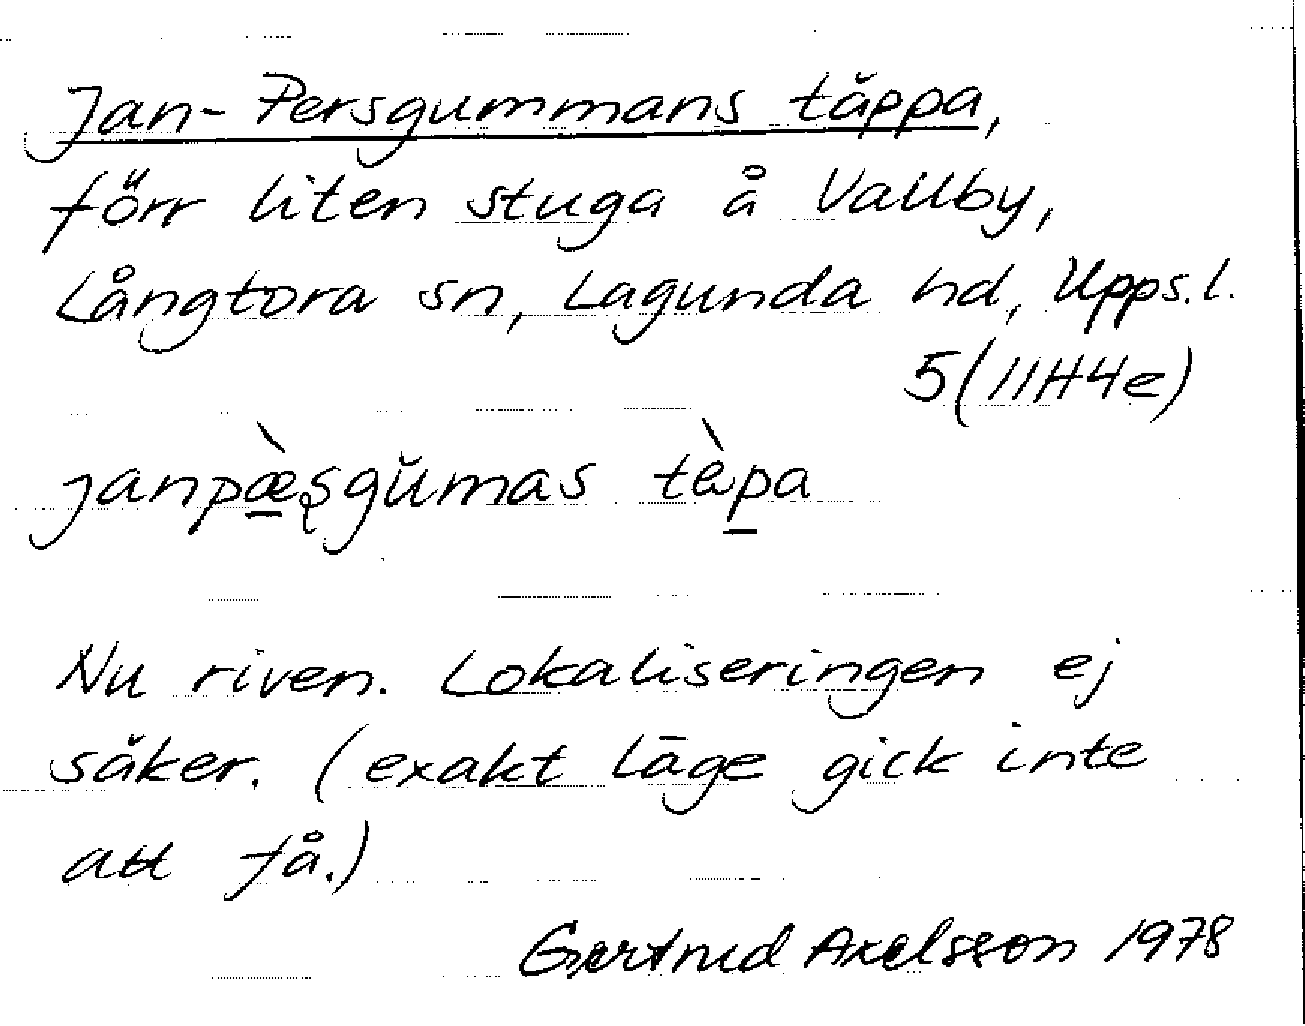 Jan-Persgummans täppa,
förr liten stuga å Vallby,
Långtora sn, Lagunda hd, Upps.l.
5(11H4e)
janpæ̀ʂgŭmas tèpa
Nu riven. Lokaliseringen ej
säker. (exakt läge gick inte
att få.)
Gertrud Axelsson 1978